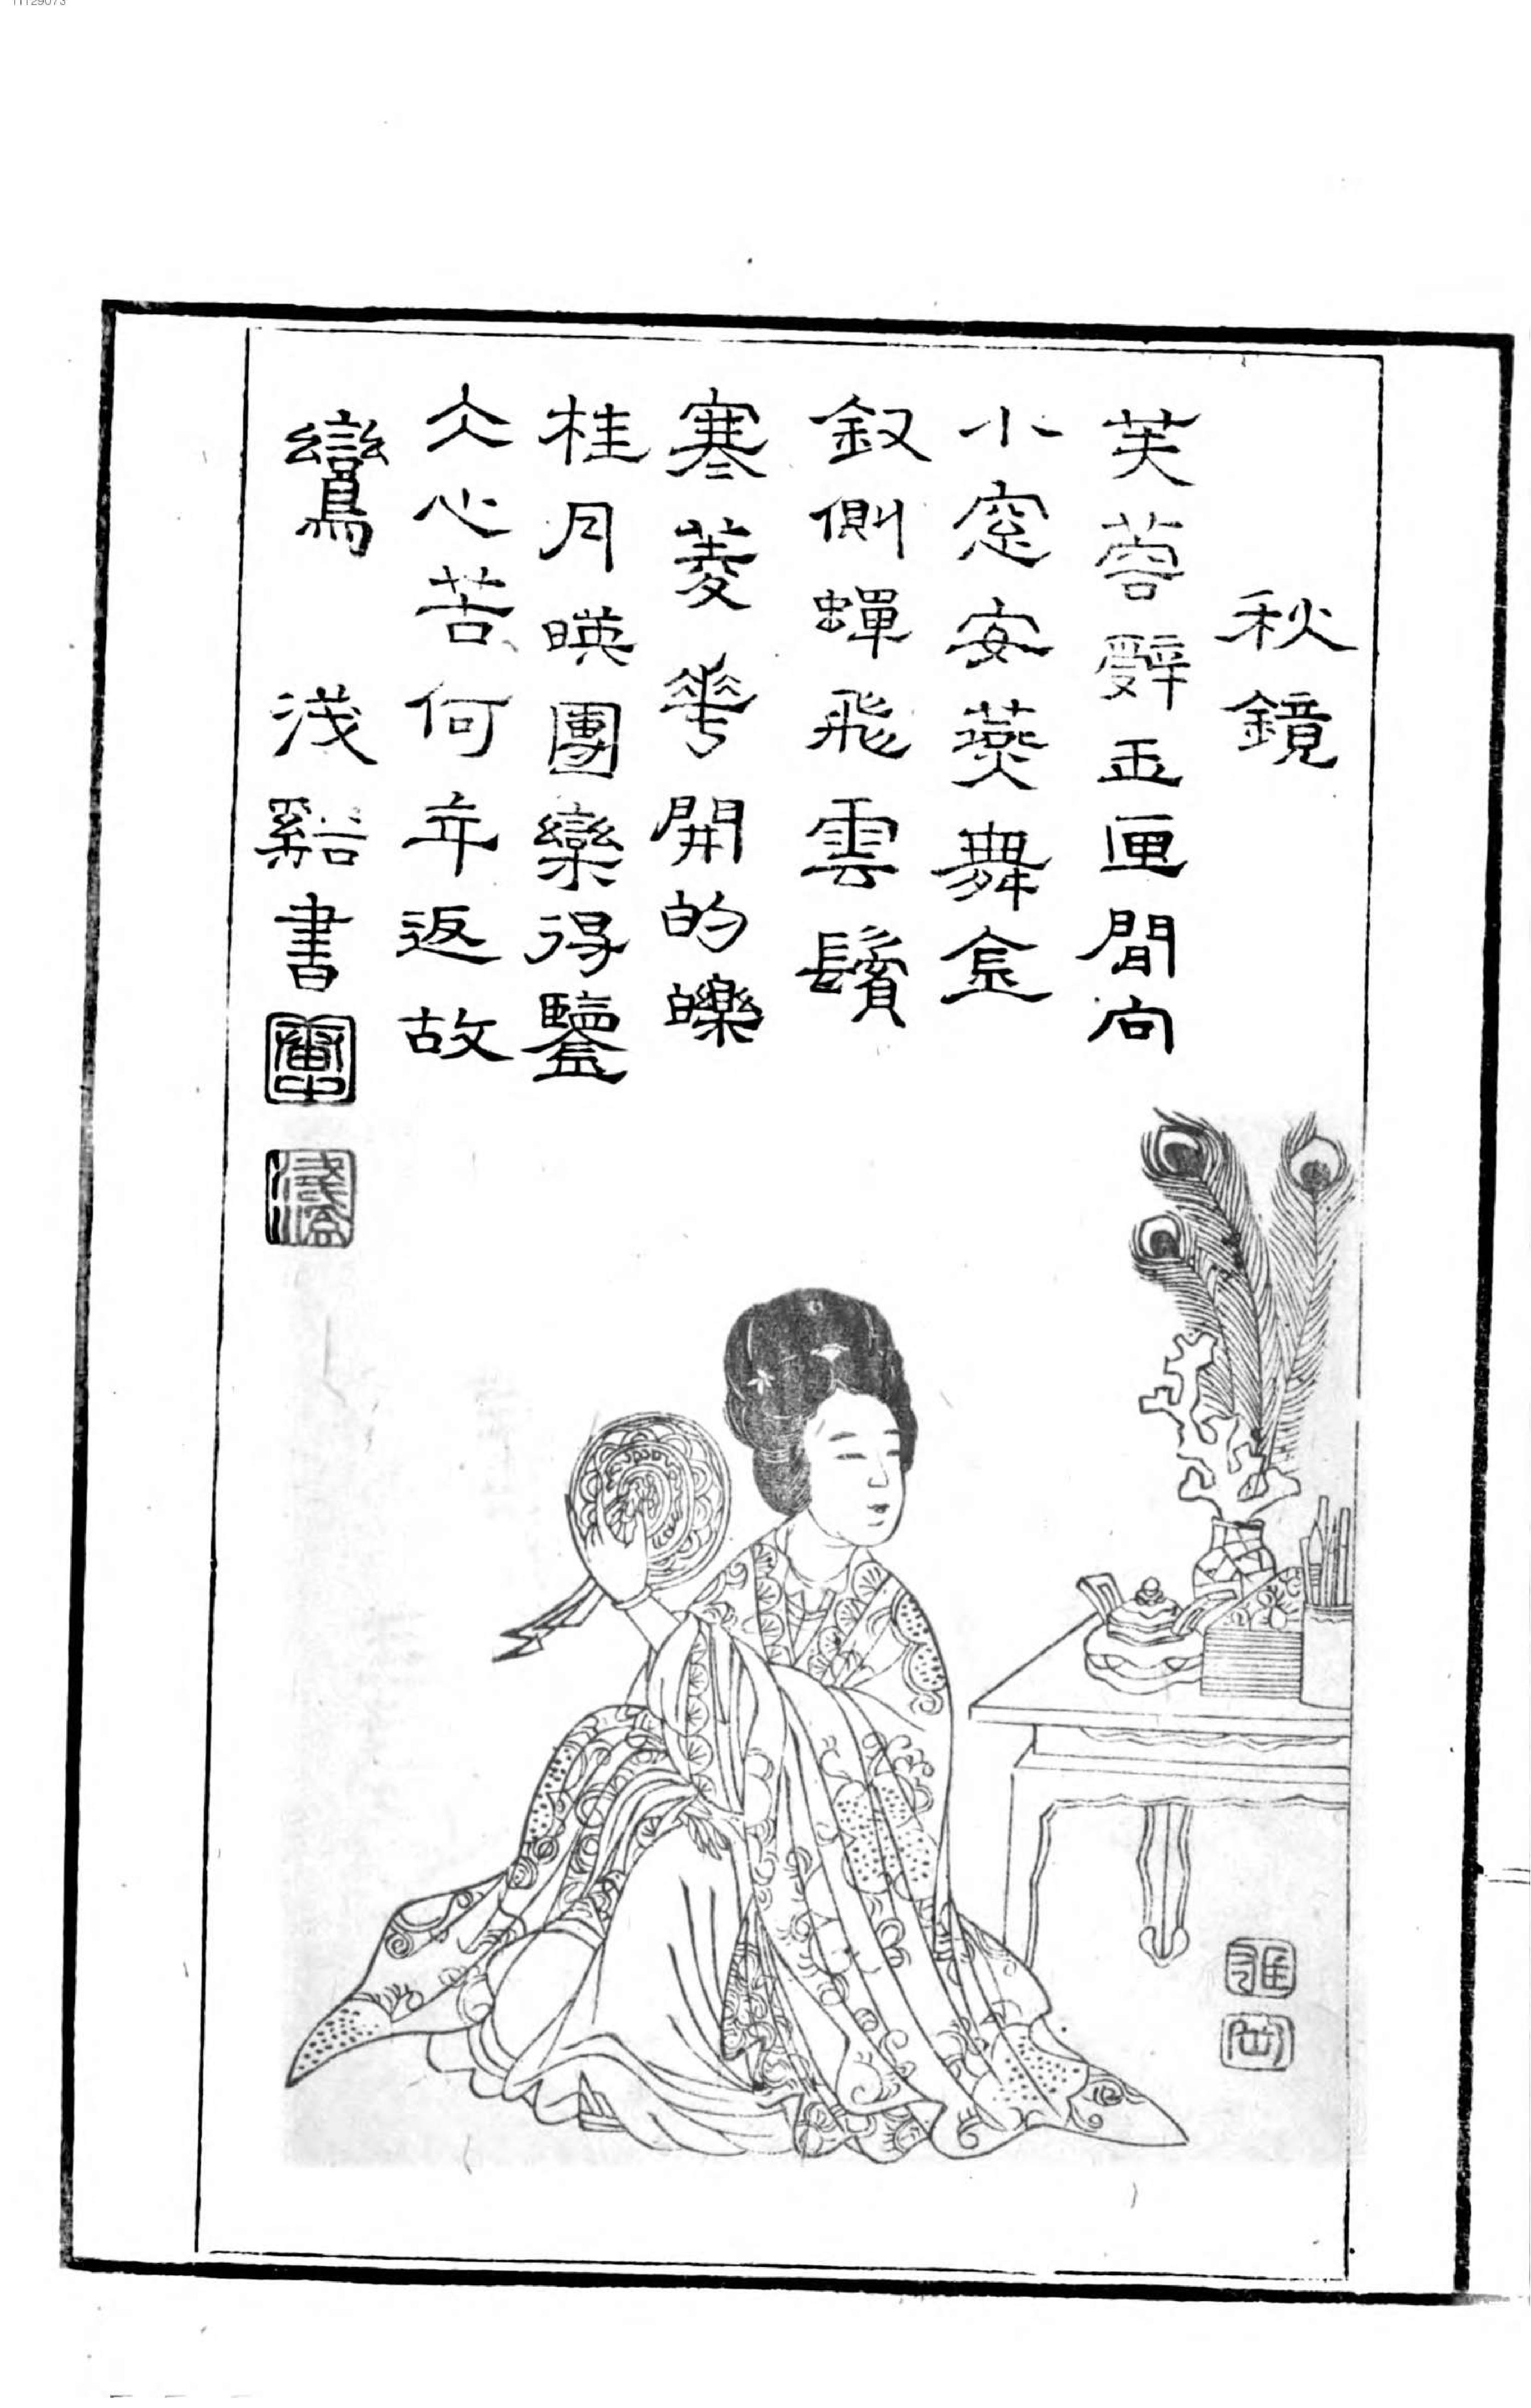 11129073
秋鏡
芙蓉辤玉匣閒向
小窓安燕舞金
釵側蟬飛雲鬢
寒菱華開的皪
桂月暎團欒得鑒
仌心苦何年返故
鸞　淺谿書